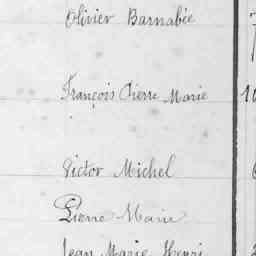 Olivier Barnabée
François Pierre Marie
Victor Michel
Pierre Marie
Jean Marie Henri